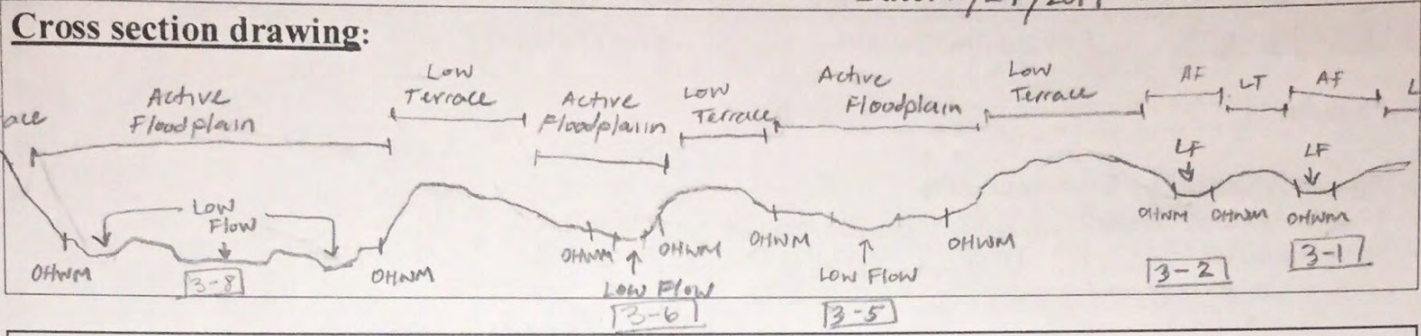 Cross section drawing:
Active
Floodplain
Low
Terrace
Active
Floodplain
Low
Terrace
Active
Floodplain
Low
Terrace
AF
LT
AF
L
ace
Low
Flow
LF
LF
OHWM
3-8
OHWM
OHWM
OHWM
Low Flow
3-6
OHWM
Low Flow
3-5
OHWM
OHWM
OHWM
3-2
OHWM
3-1